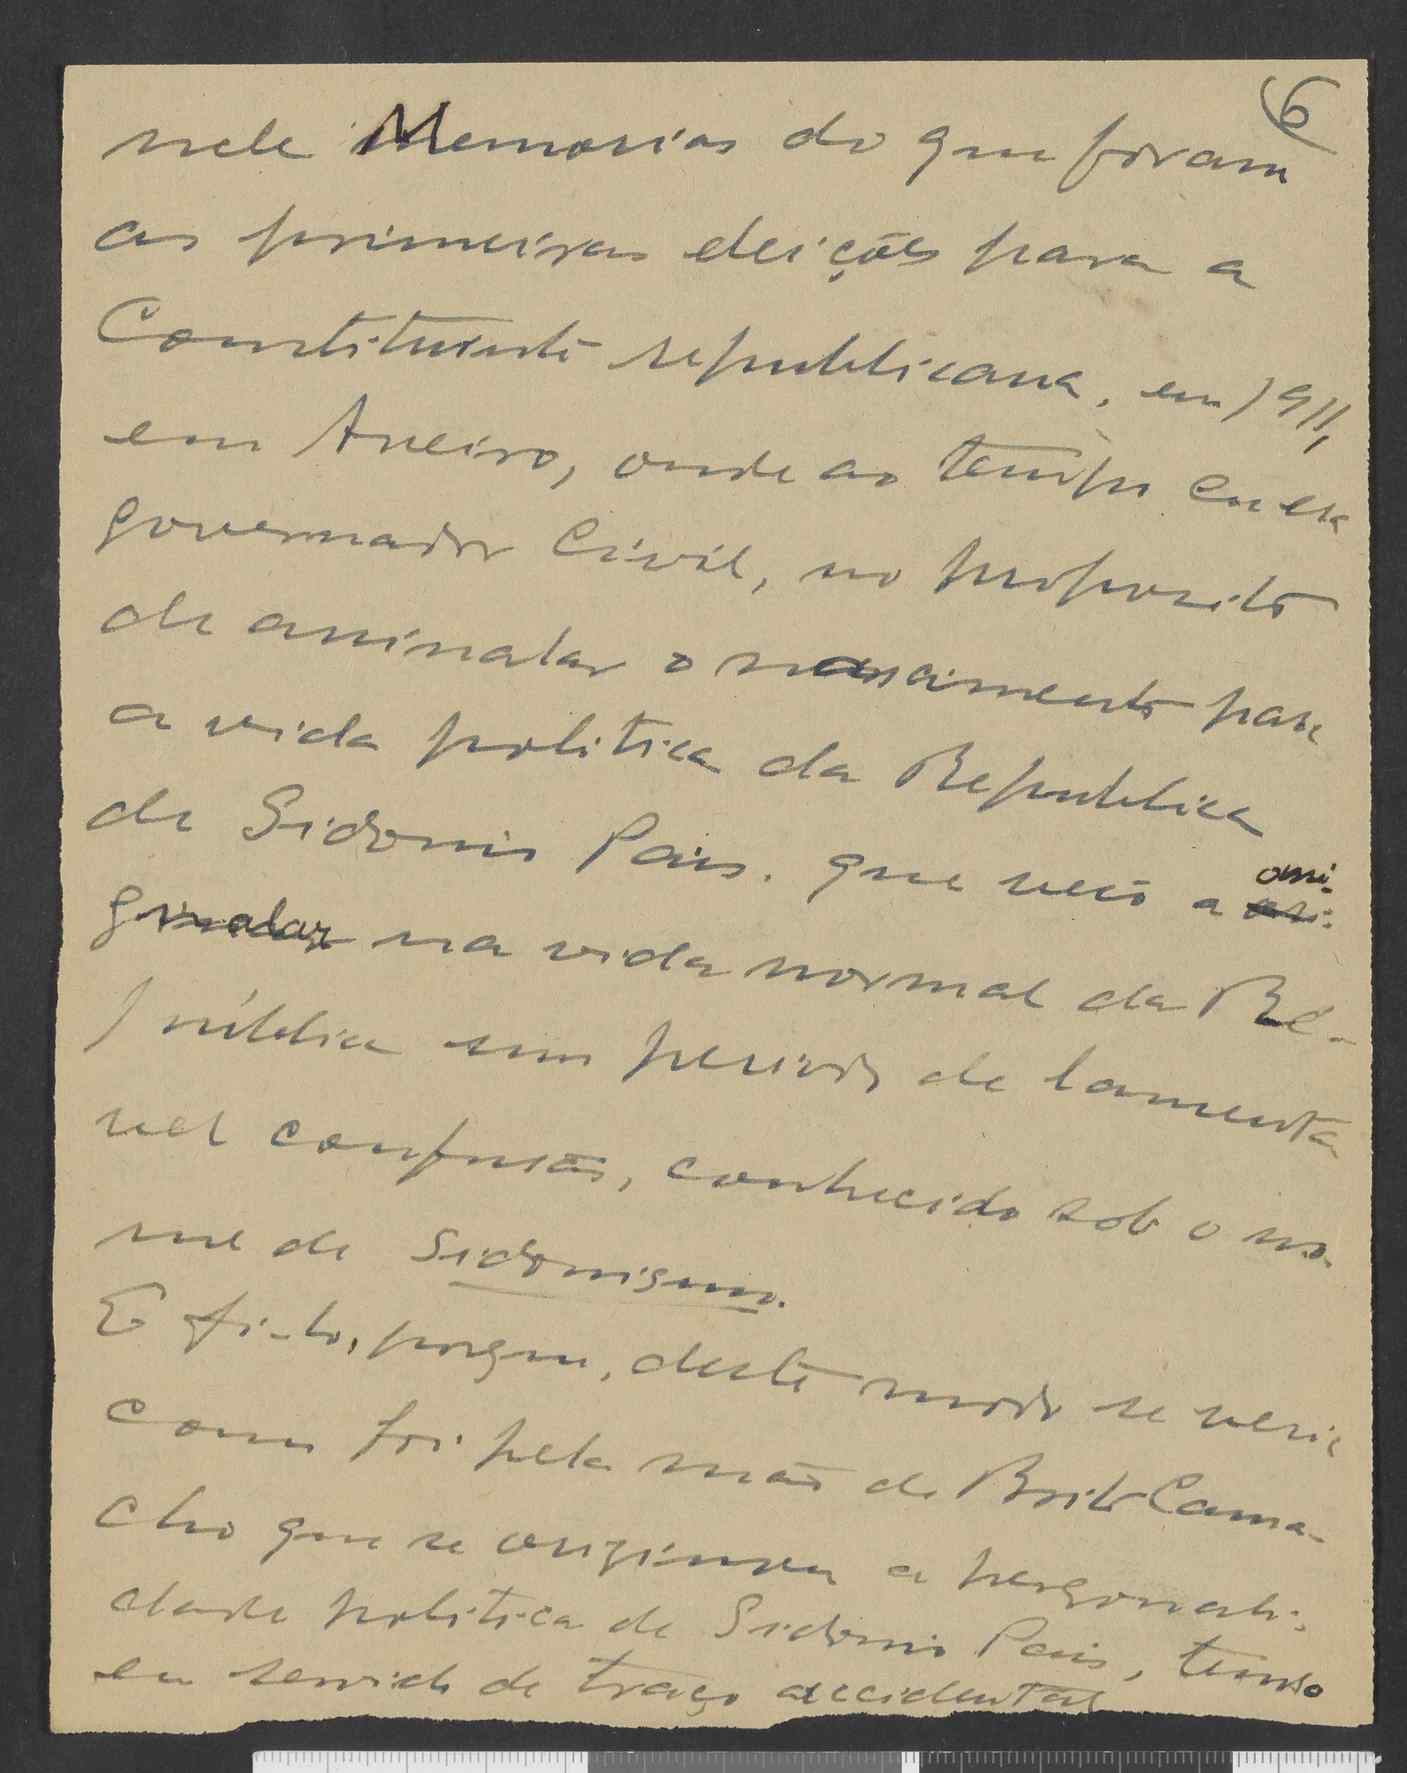 6
nele Memorias do que foram
as primeiras eleições para a
Constituinte republicana, em 1911,
em Aveiro, onde ao tempo eu era
governador Civil, no proposito
de assinalar o nascimento para
a vida politica da Republica
de Sidonio Pais. que veiu a assi-
gnalar na vida normal da Ré-
pública um periodo de lamenta
vel confusão, conhecido sob o no-
me de Sidonismo.
E fi-lo, porque, deste modo se veria
como foi pela mão de Brito Cama-
cho que se originou a personali-
dade politica de Sidonio Pais, tendo
eu servido de traço accidental